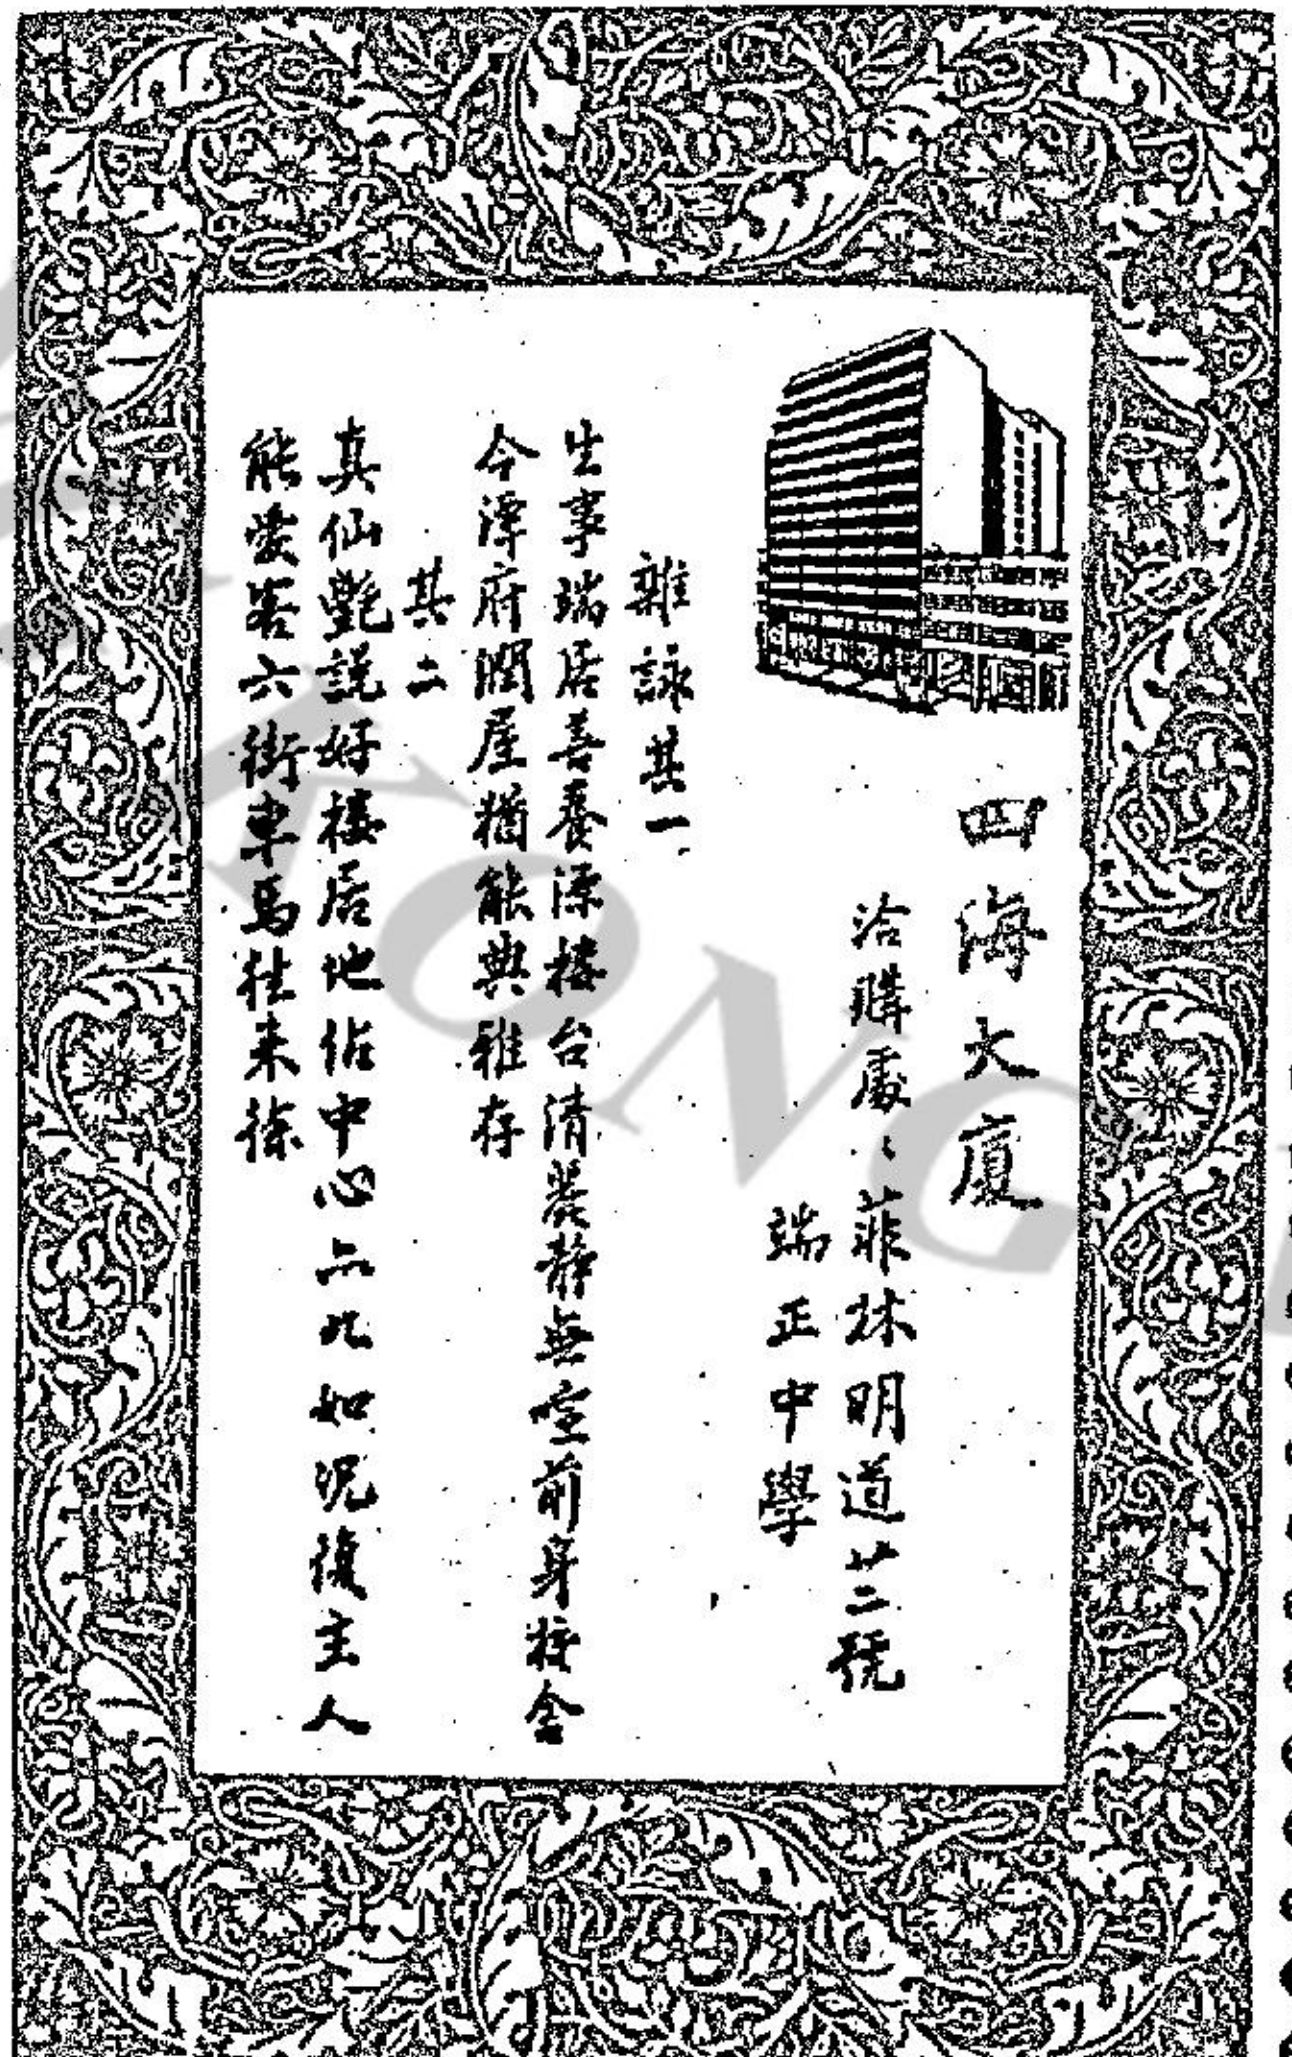 四海大廈
洽購處：菲林明道廿二號
端正中學
雜詠其一
生事端居善養源樓台清麗靜無喧前身精舍
今潭府潤屋猶能典雅存
其二
真仙艷說好樓居地佔中心亦比如況復主人
能愛客六街車馬往來徐
KONG